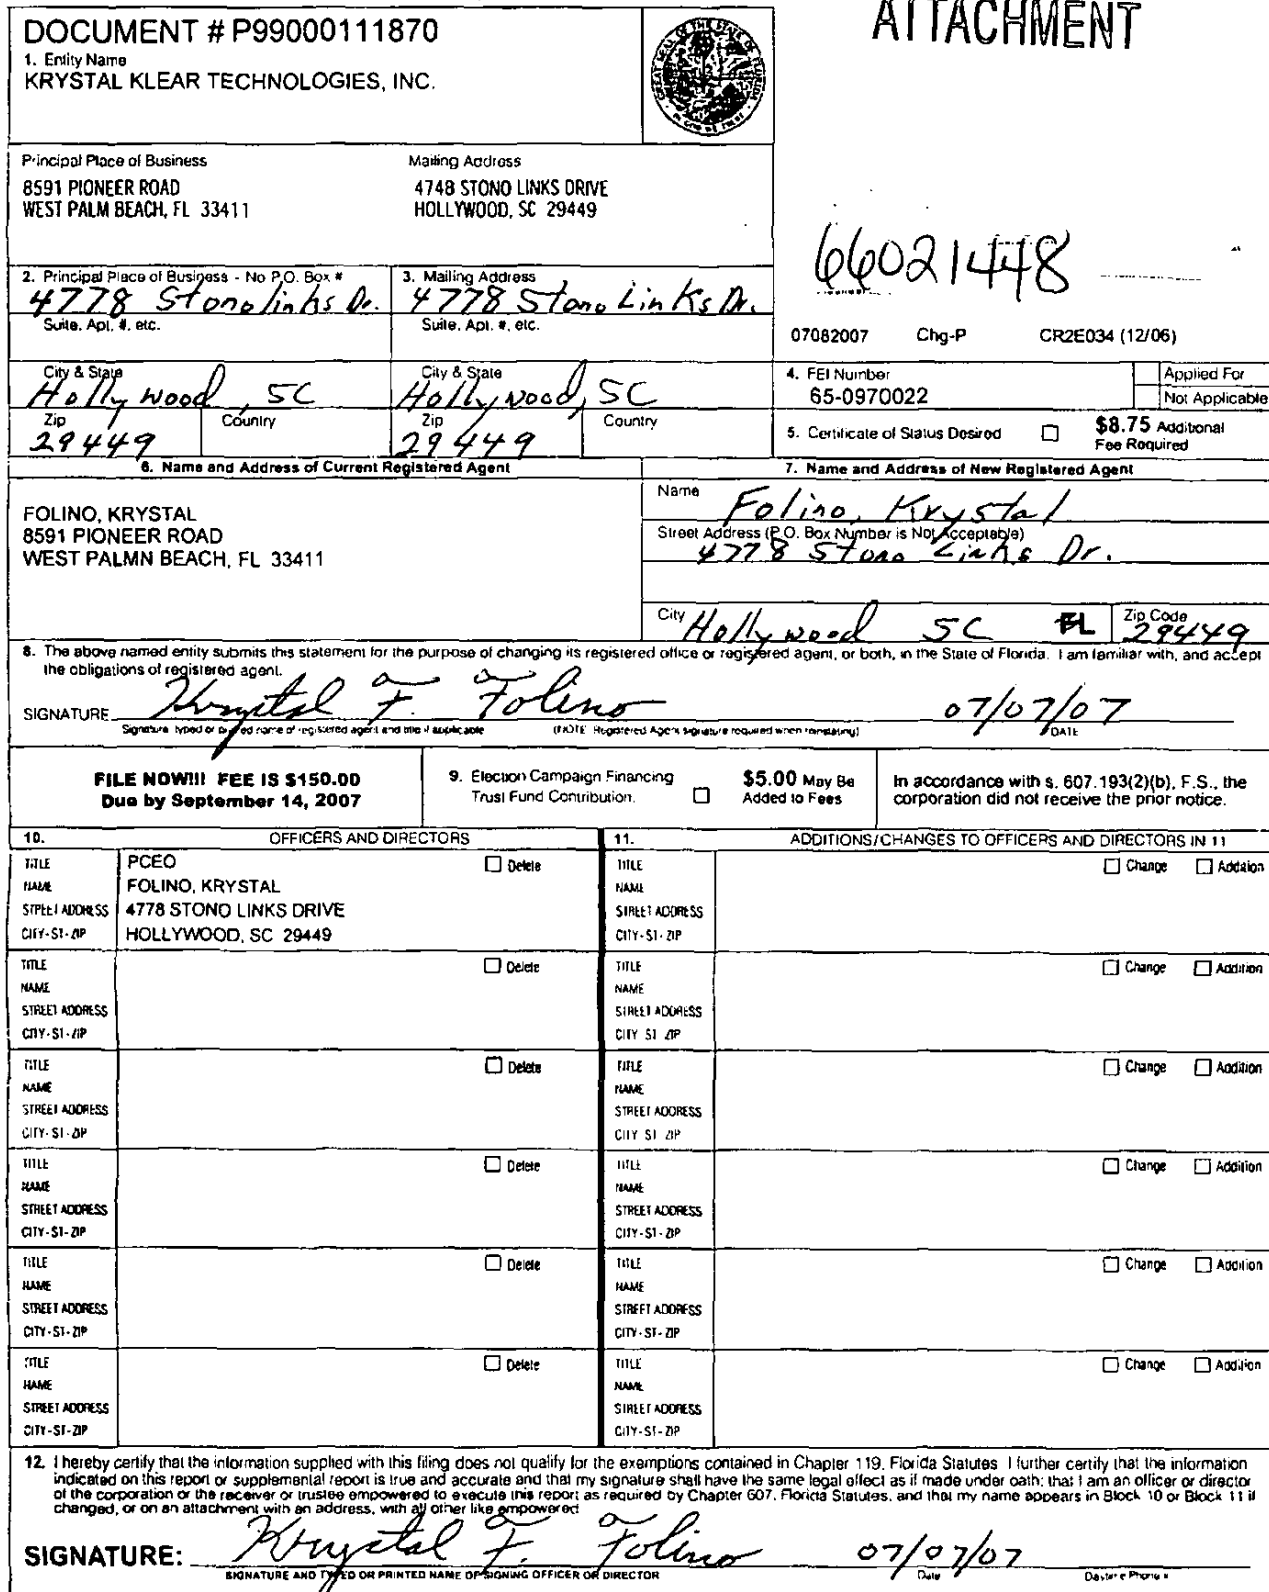 ATTACHMENT
DOCUMENT # P99000111870
1. Entity Name
KRYSTAL KLEAR TECHNOLOGIES, INC.
GREAT SEAL OF THE STATE OF FLORIDA
IN GOD WE TRUST
Principal Place of Business
8591 PIONEER ROAD
WEST PALM BEACH, FL 33411
Mailing Address
4748 STONO LINKS DRIVE
HOLLYWOOD, SC 29449
66021448
2. Principal Place of Business - No P.O. Box #
4778 Stono links Dr.
Suite, Apt. #, etc.
3. Mailing Address
4778 Stono Links Dr.
Suite, Apt. #, etc.
07082007 Chg-P CR2E034 (12/06)
City & State
Hollywood, SC
City & State
Hollywood, SC
4. FEI Number
65-0970022
Applied For
Not Applicable
Zip
29449
Country
Zip
29449
Country
5. Certificate of Status Desired
$8.75 Additional
Fee Required
6. Name and Address of Current Registered Agent
7. Name and Address of New Registered Agent
FOLINO, KRYSTAL
8591 PIONEER ROAD
WEST PALMN BEACH, FL 33411
Name
Folino, Krystal
Street Address (P.O. Box Number is Not Acceptable)
4778 Stono Links Dr.
City
Hollywood SC FL
Zip Code
29449
8. The above named entity submits this statement for the purpose of changing its registered office or registered agent, or both, in the State of Florida. I am familiar with, and accept
the obligations of registered agent.
SIGNATURE Krystal F. Folino 07/07/07
Signature, typed or printed name of registered agent and title if applicable (NOTE: Registered Agent signature required when reinstating) DATE
FILE NOW!!! FEE IS $150.00
Due by September 14, 2007
9. Election Campaign Financing
Trust Fund Contribution.
$5.00 May Be
Added to Fees
In accordance with s. 607.193(2)(b), F.S., the
corporation did not receive the prior notice.
10. OFFICERS AND DIRECTORS
11. ADDITIONS/CHANGES TO OFFICERS AND DIRECTORS IN 11
TITLE PCEO Delete
NAME FOLINO, KRYSTAL
STREET ADDRESS 4778 STONO LINKS DRIVE
CITY-ST-ZIP HOLLYWOOD, SC 29449
TITLE Change Addition
NAME
STREET ADDRESS
CITY-ST-ZIP
TITLE Delete
NAME
STREET ADDRESS
CITY-ST-ZIP
TITLE Change Addition
NAME
STREET ADDRESS
CITY ST ZIP
TITLE Delete
NAME
STREET ADDRESS
CITY-ST-ZIP
TITLE Change Addition
NAME
STREET ADDRESS
CITY ST ZIP
TITLE Delete
NAME
STREET ADDRESS
CITY-ST-ZIP
TITLE Change Addition
NAME
STREET ADDRESS
CITY-ST-ZIP
TITLE Delete
NAME
STREET ADDRESS
CITY-ST-ZIP
TITLE Change Addition
NAME
STREET ADDRESS
CITY-ST-ZIP
TITLE Delete
NAME
STREET ADDRESS
CITY-ST-ZIP
TITLE Change Addition
NAME
STREET ADDRESS
CITY-ST-ZIP
12. I hereby certify that the information supplied with this filing does not qualify for the exemptions contained in Chapter 119, Florida Statutes. I further certify that the information
indicated on this report or supplemental report is true and accurate and that my signature shall have the same legal effect as if made under oath; that I am an officer or director
of the corporation or the receiver or trustee empowered to execute this report as required by Chapter 607, Florida Statutes; and that my name appears in Block 10 or Block 11 if
changed, or on an attachment with an address, with all other like empowered.
SIGNATURE: Krystal F. Folino 07/07/07
SIGNATURE AND TYPED OR PRINTED NAME OF SIGNING OFFICER OR DIRECTOR Date Daytime Phone #